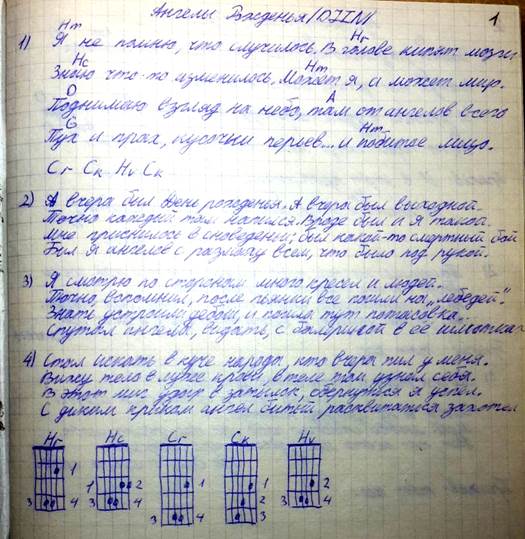 Ангелы Возденья/DIIM/ 1
Hm Hr
1) Я не помню, что случилось. В голове кипят мозги
Hc Hm
Знаю что-то изменилось. Может я, а может мир.
D A
Поднимаю взгляд на небо, там от ангелов всего
G Hm
Пух и прах, кусочки перьев... и побитое лицо.
Cr Ck Hv Ck
2) А вчера был День рожденья. А вчера был выходной.
Точно каждый там напился. Вроде был и я такой.
Мне приснилось в сноведеньи; был какой-то смертный бой
Бил я ангелов с размаху всем, что было под рукой.
3) Я смотрю по сторонам много кресел и людей.
Точно, вспомнил, после пьянки все пошли на „лебедей".
Знать устроили дебош, и пошла тут потасовка...
Спутал ангела, видать, с балериной в её
4) Стал искать в куче народа, кто вчера пил у меня.
Вижу тело в луже крови, в теле том узнал себя.
В этот миг удар в затылок, обернуться я успел.
С диким криком ангел битый расквитаться захотел
Hr Hc Cr Ck Hv
1 1 2 1 1 2
3 4 3 4 2 2 3 4
3 4 3